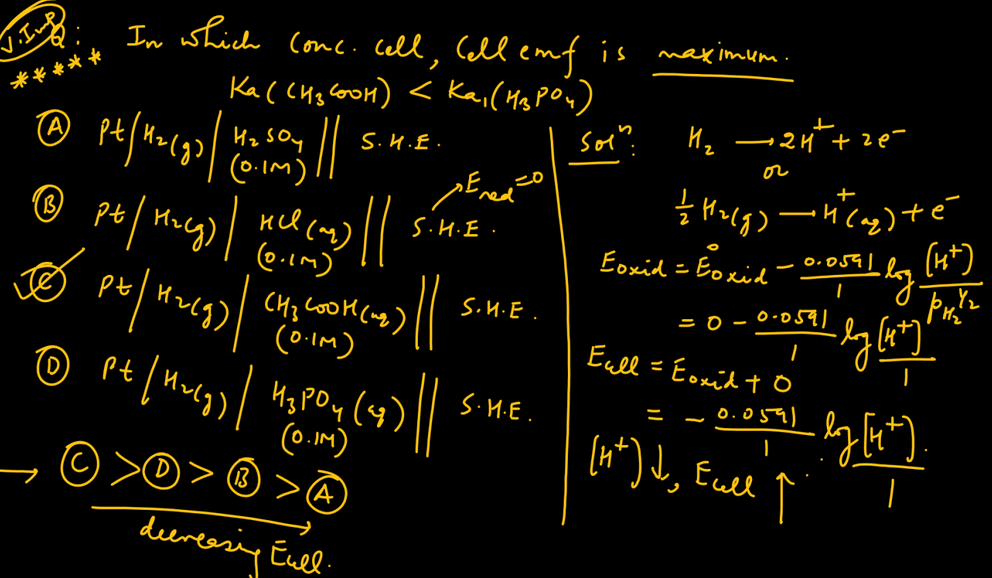 V. Imp Q: In which conc. cell, Cell emf is maximum.
*****
Ka (CH3COOH) < Ka1 (H3PO4)
(A) Pt / H2(g) | H2SO4 (0.1M) || S.H.E.
(B) Pt / H2(g) | HCl (aq) (0.1M) || S.H.E. → Ered = 0
(C) Pt / H2(g) | CH3COOH (aq) (0.1M) || S.H.E.
(D) Pt / H2(g) | H3PO4 (aq) (0.1M) || S.H.E.
→ (C) > (D) > (B) > (A)
decreasing Ecell.
Solⁿ: H2 → 2H⁺ + 2e⁻
or
1/2 H2(g) → H⁺(aq) + e⁻
Eoxid = E°oxid - 0.0591/1 log [H⁺]/pH2^1/2
= 0 - 0.0591/1 log [H⁺]/1
Ecell = Eoxid + 0
= - 0.0591/1 log [H⁺]/1.
[H⁺] ↓, Ecell ↑